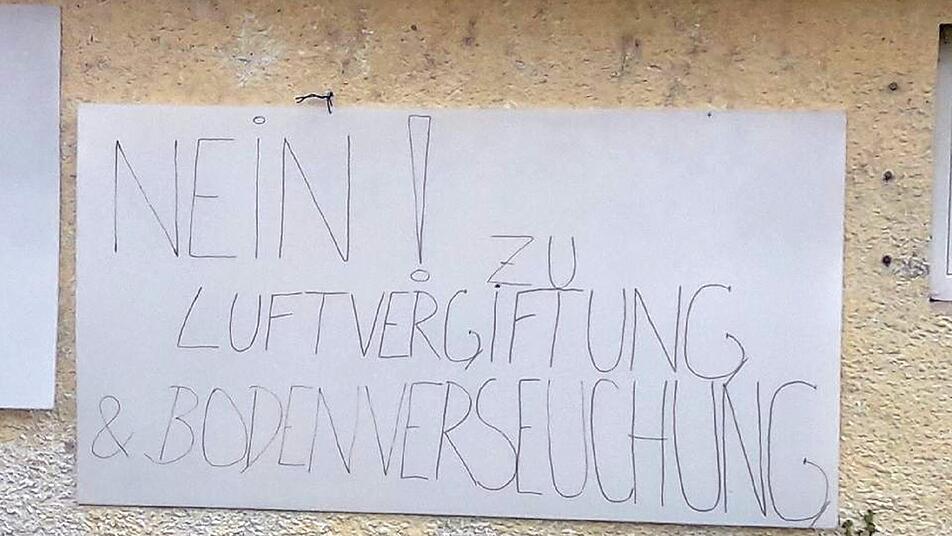 NEIN! ZU
LUFTVERGIFTUNG
& BODENVERSEUCHUNG